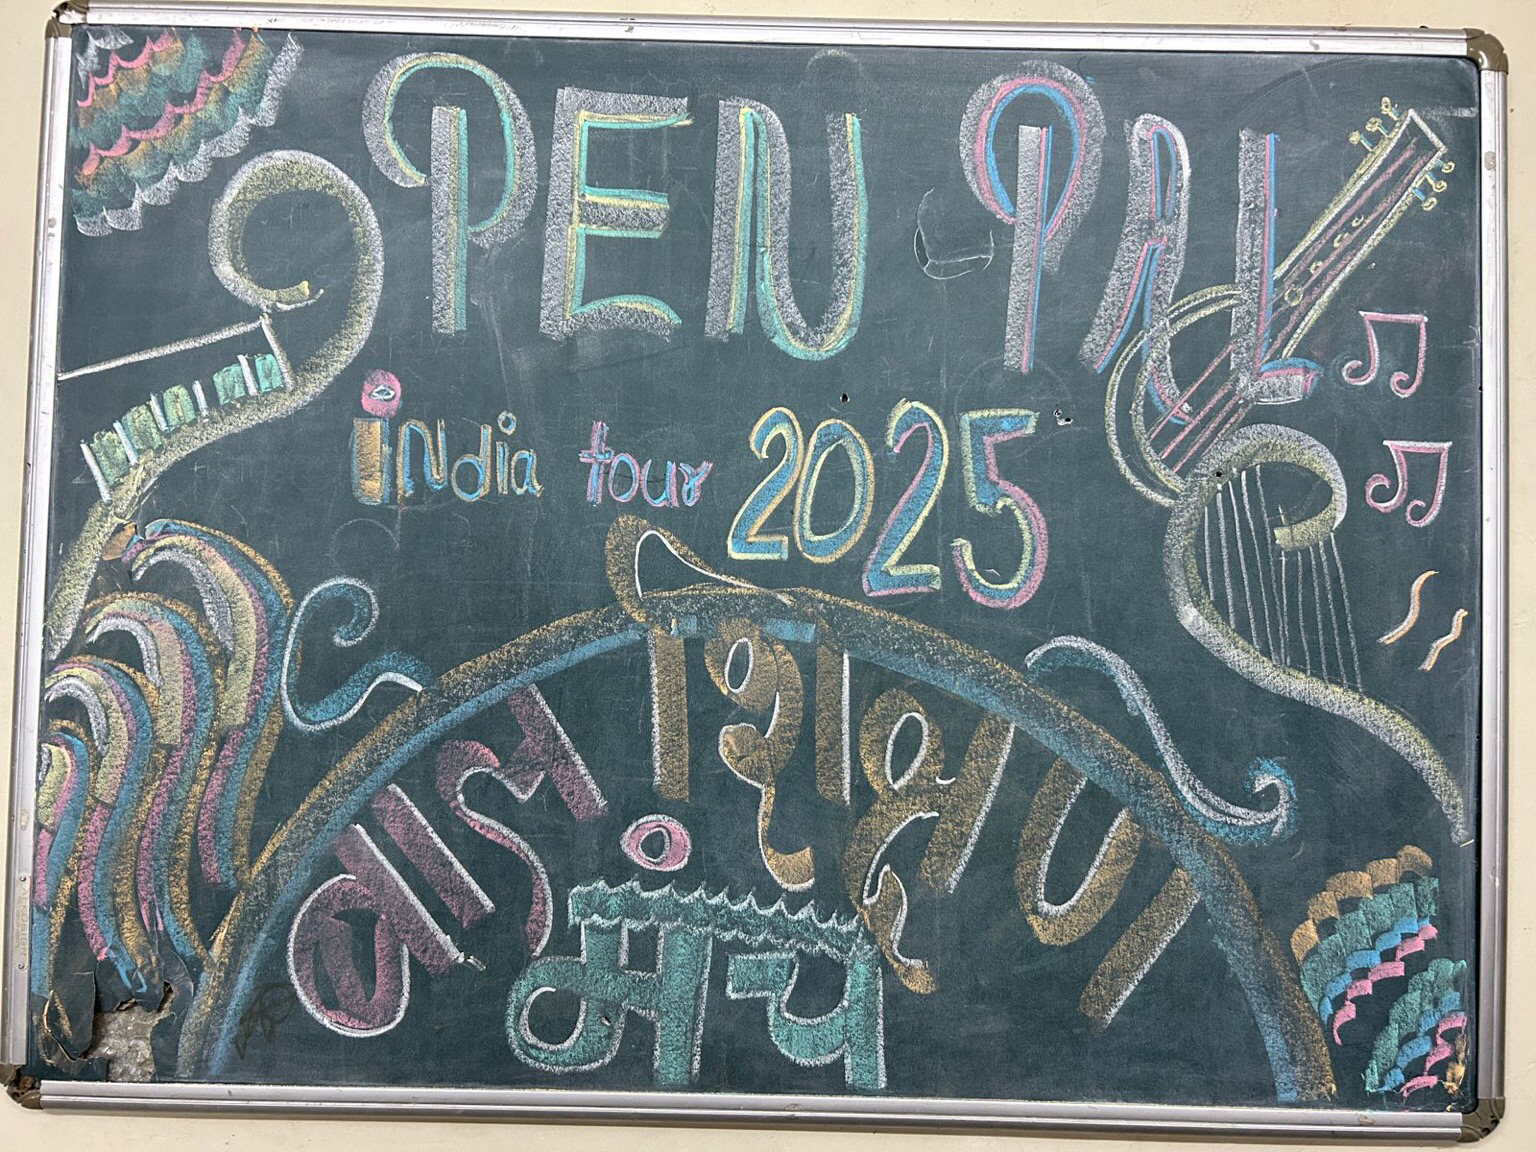 PEN PAL
india tour 2025
बाल शिक्षण
मंच